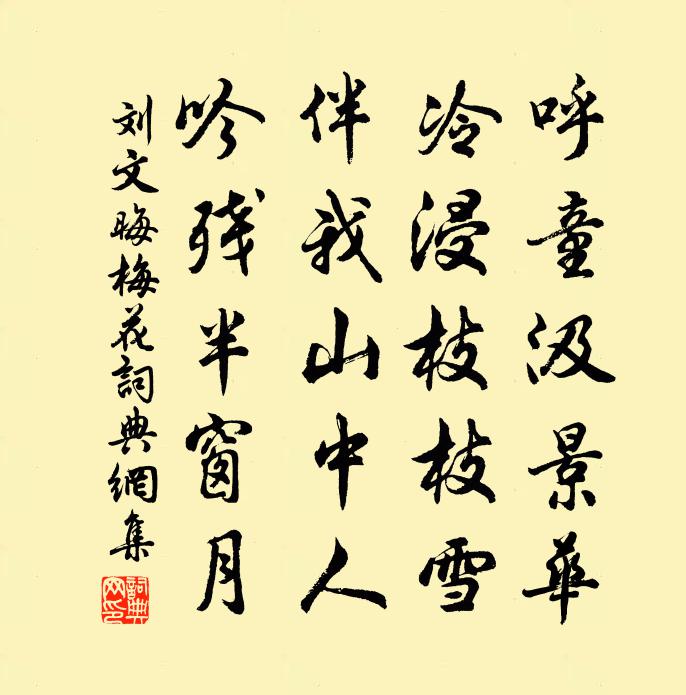 呼童汲景華
冷浸枝枝雪
伴我山中人
吟残半窗月
刘文晦梅花詞典網集
詞典網印